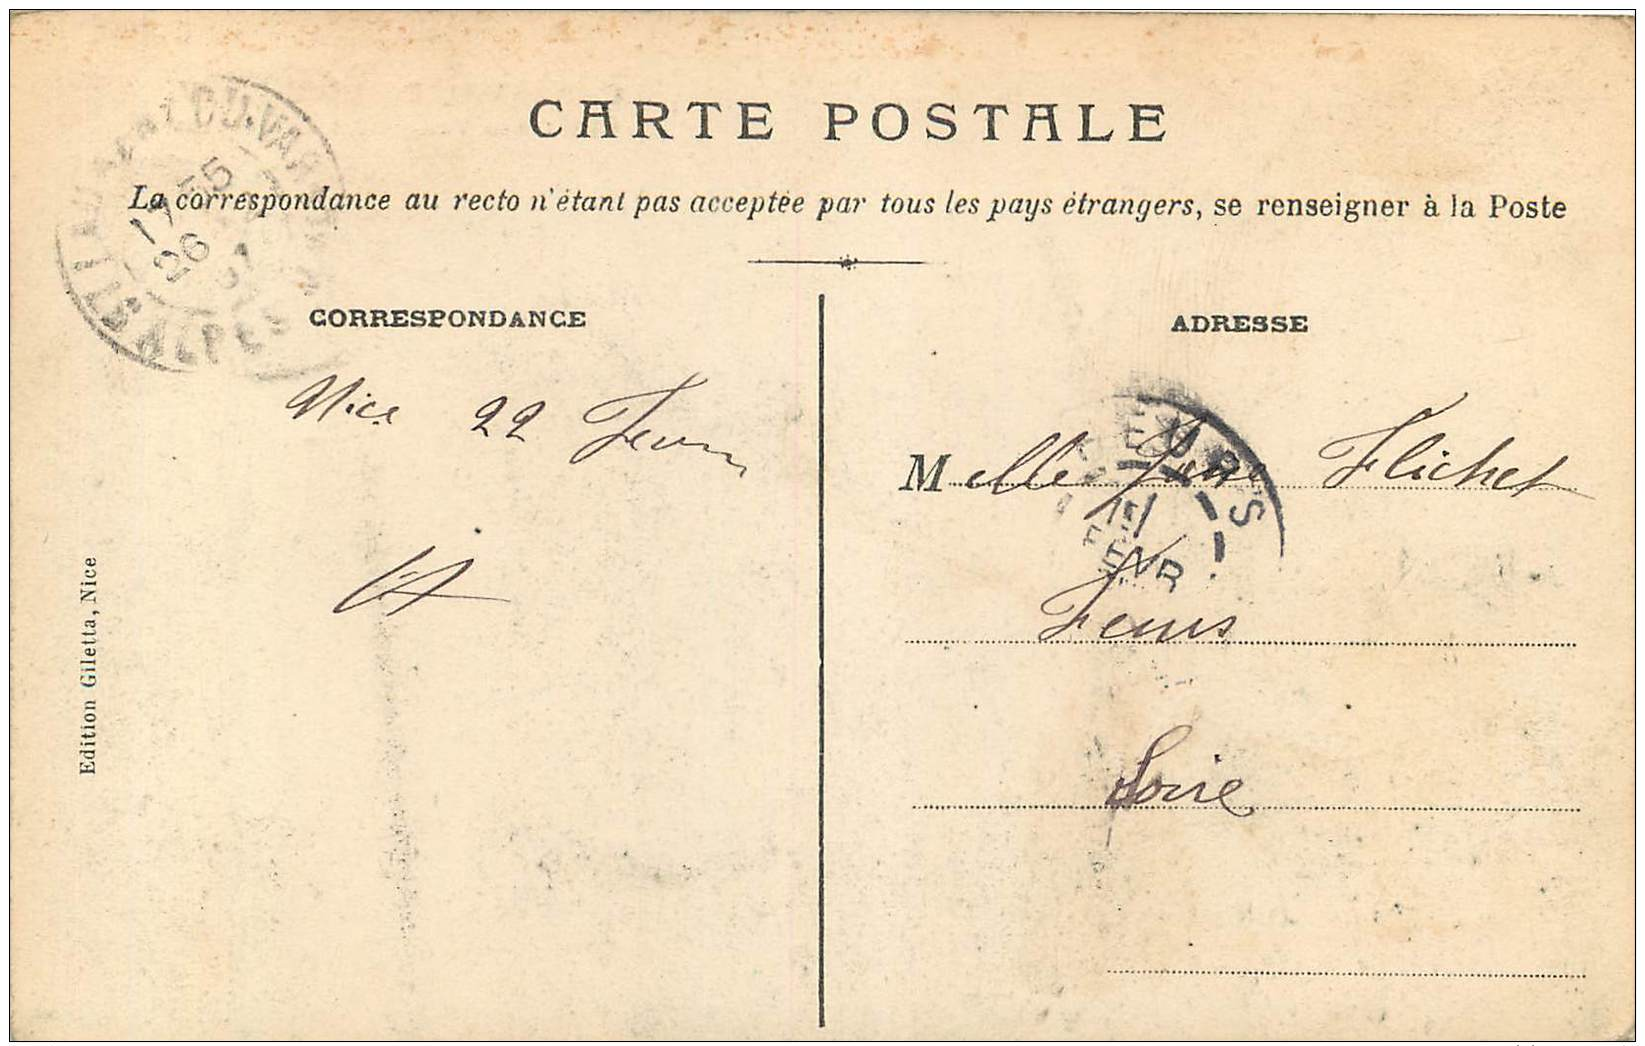 CARTE POSTALE
La correspondance au recto n'étant pas acceptée par tous les pays étrangers, se renseigner à la Poste
CORRESPONDANCE
Nice 22 Fevr
Edition Giletta, Nice
DU-VAR
17 55
26
ALPES
ADRESSE
Melle Flichet
Feurs
Loire
FEURS
FEVR